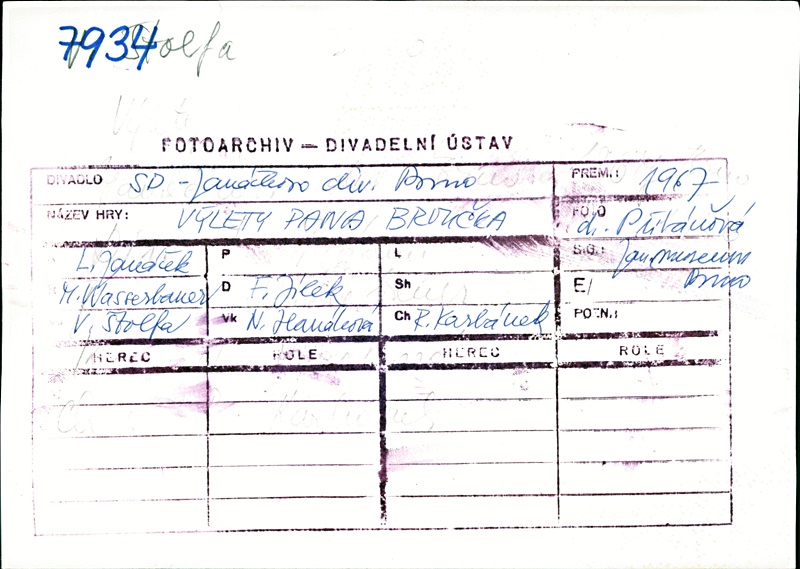 7934 Štolfa
FOTOARCHIV — DIVADELNÍ ÚSTAV
DIVADLO SD - Janáčkovo div. Brno PREM.: 1967
NÁZEV HRY: VÝLETY PANA BROUČKA FOTO dr. Přibáňová
L. Janáček P L SIG.: Jan. museum Brno
M. Wasserbauer D F. Jílek Sh E/
V. Štolfa Vk N. Hanáková Ch R. Karhánek POZN.:
HEREC ROLE HEREC ROLE